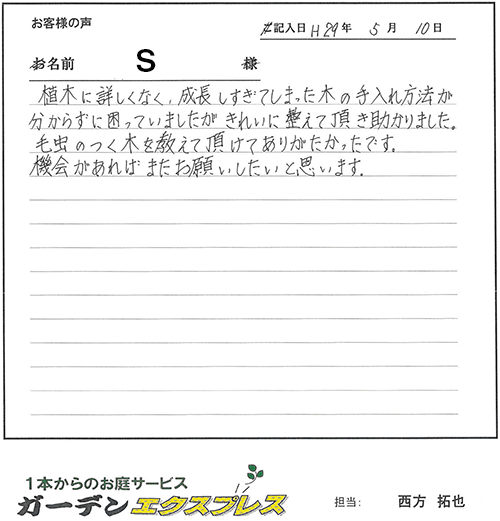 お客様の声
ご記入日 H29年 5月 10日
お名前 S 様
植木に詳しくなく、成長しすぎてしまった木の手入れ方法が
分からずに困っていましたがきれいに整えて頂き助かりました。
毛虫のつく木を教えて頂けてありがたかったです。
機会があればまたお願いしたいと思います。
1本からのお庭サービス
ガーデンエクスプレス
担当: 西方 拓也